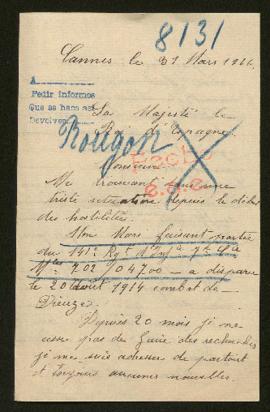 8131
Cannes le 31 Mars 1916.
A
Pedir informes
Que se hace
Devolver
Sa Majesté le
Roi d'Espagne
Rougon
Hecho
Monsieur
Me trouvant dans une
triste situation depuis le début
des hostilités.
Mon Mari faisant partie
du 141e Rgt d'Inf. 7e Cie
Mle 202/04700 - a disparu
le 20 août 1914 combat de
Dieuze.
Depuis 20 mois je ne
cesse pas de faire des recherches
je me suis adressée de partout
et toujours aucunes nouvelles.